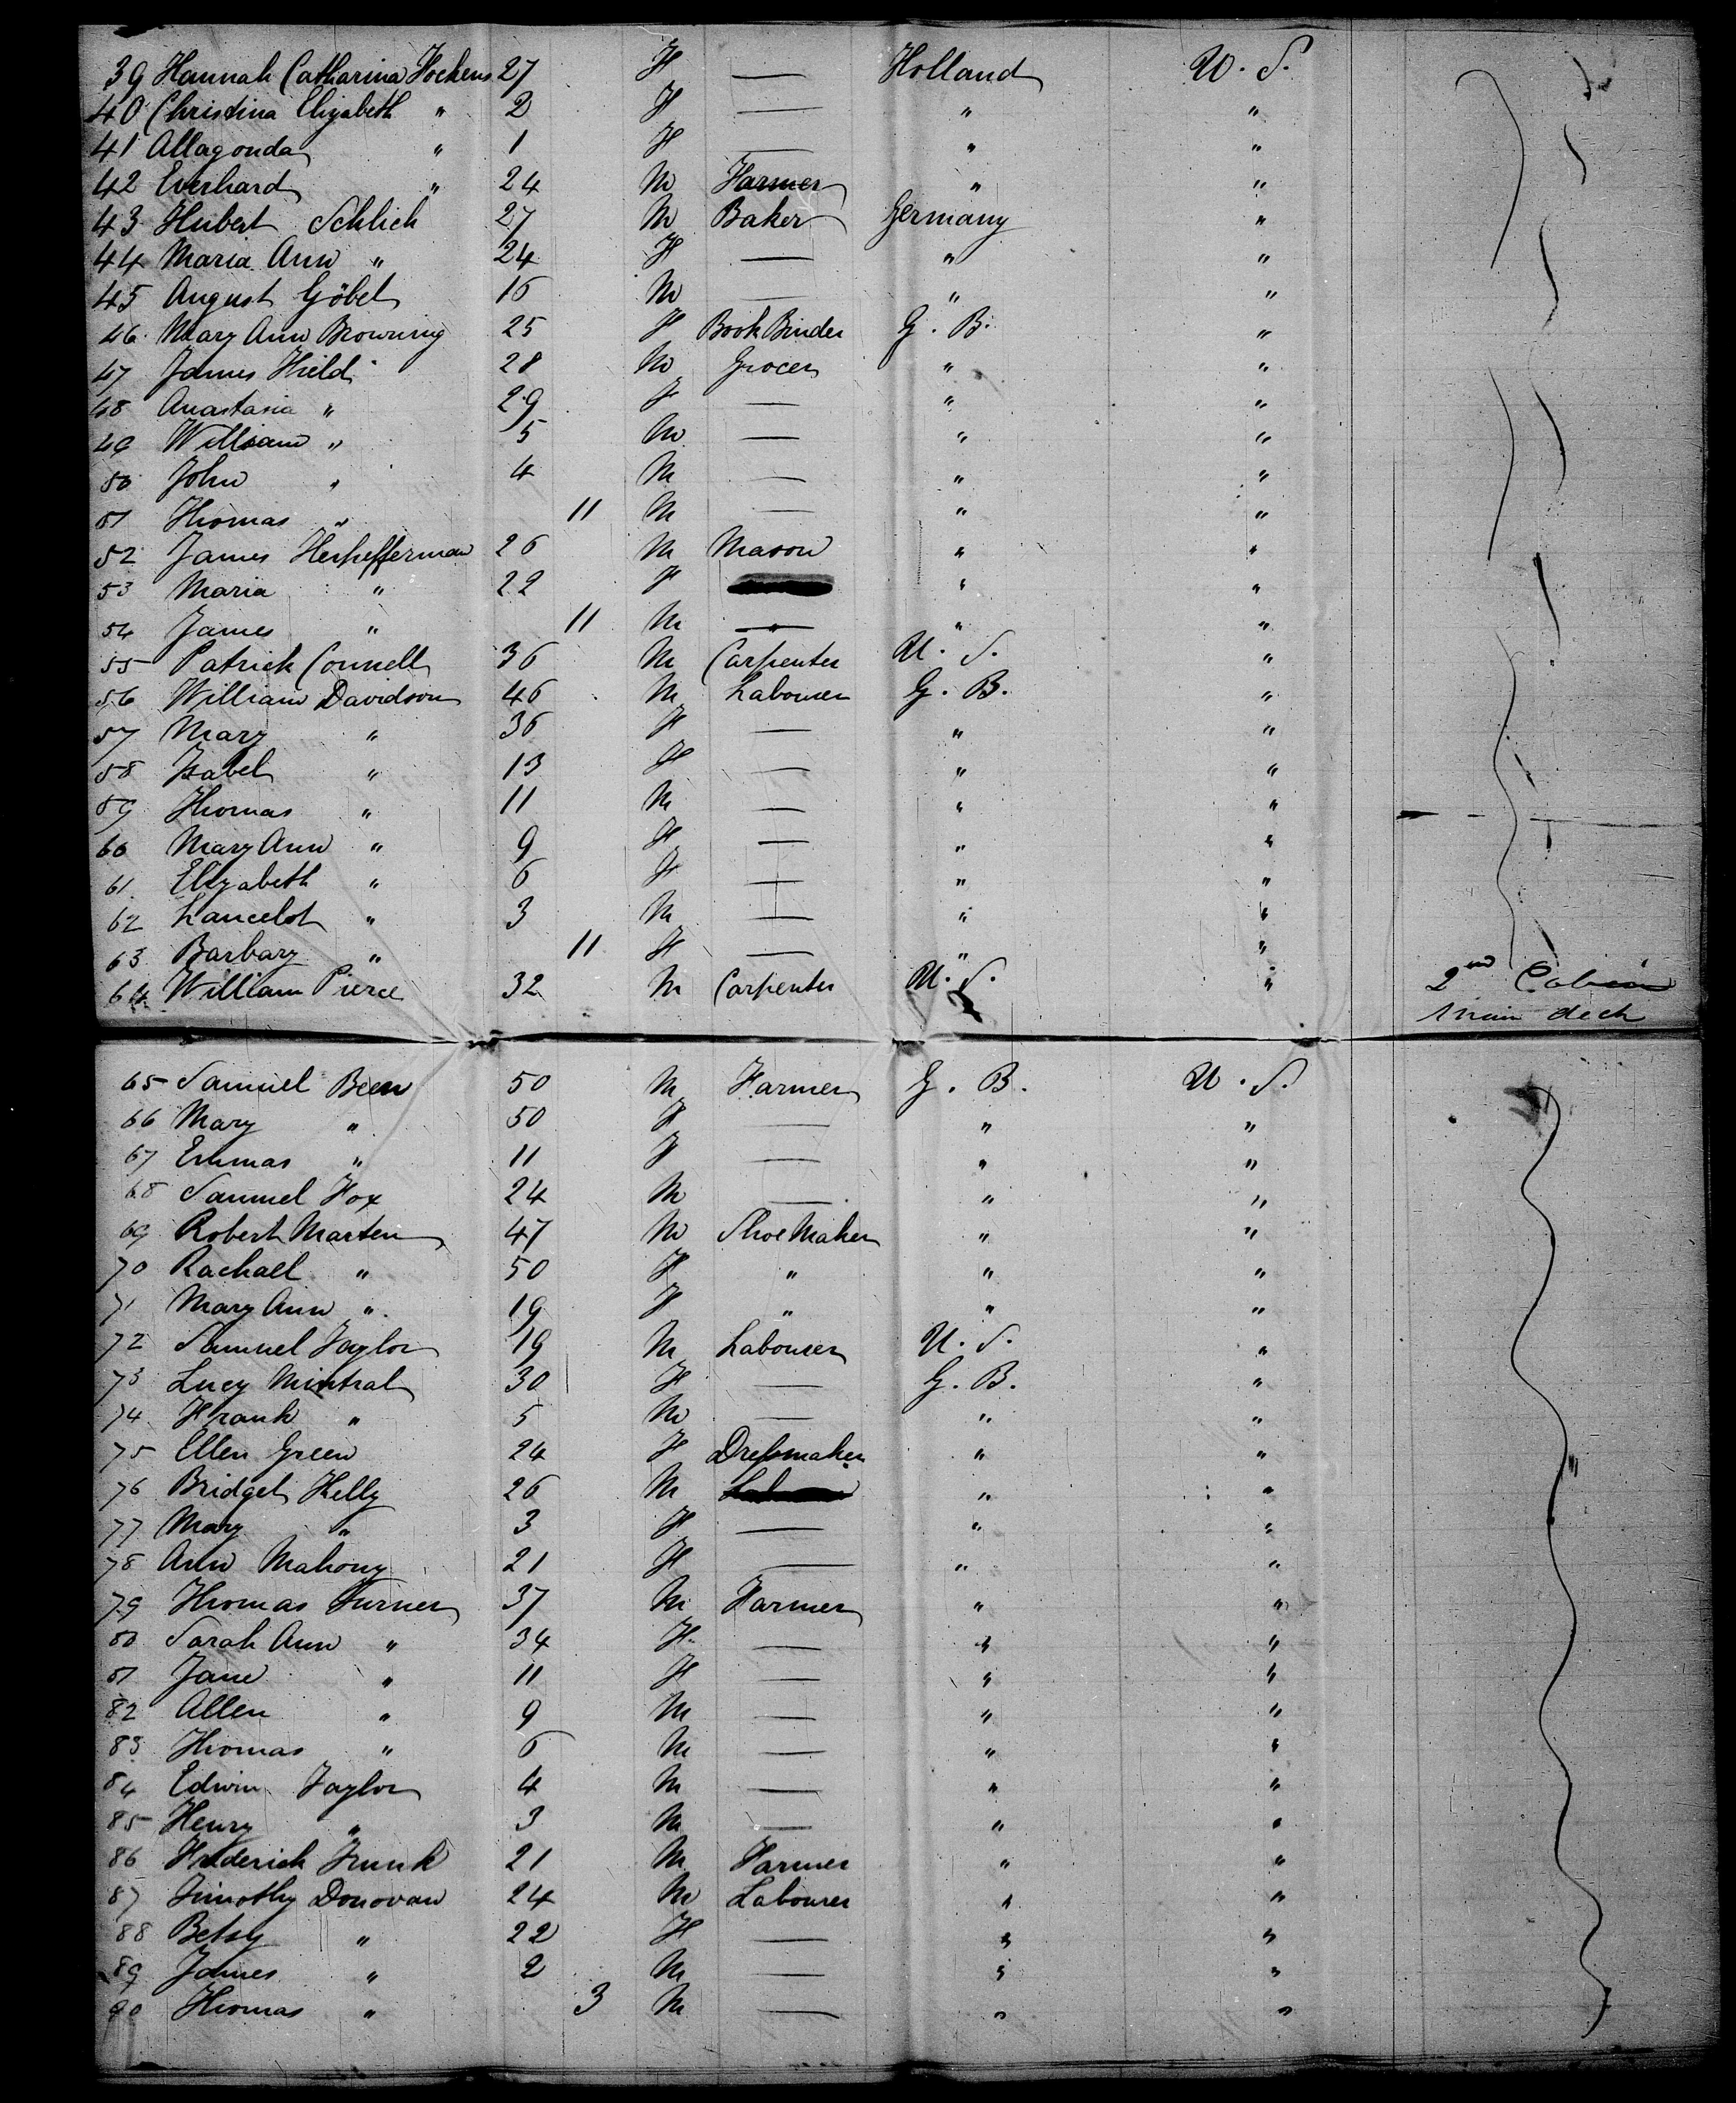 39 Hannah Catharina Hockens 27 F — Holland U. S.
40 Christina Elizabeth " 2 F — " "
41 Allagonda " 1 F — " "
42 Everhard " 24 M Farmer " "
43 Hubert Schlich 27 M Baker Germany "
44 Maria Ann " 24 F — " "
45 August Göbel 16 M — " "
46 Mary Ann Browning 25 F Book Binder G. B. "
47 James Hield 28 M Grocer " "
48 Anastasia " 29 F — " "
49 William " 5 M — " "
50 John " 4 M — " "
51 Thomas " 11 M — " "
52 James 26 M Mason " "
53 Maria " 22 F " "
54 James " 11 M — " "
55 Patrick Connell 36 M Carpenter U. S. "
56 William Davidson 46 M Labourer G. B. "
57 Mary " 36 F — " "
58 Isabel " 13 F — " "
59 Thomas " 11 M — " "
60 Mary Ann " 9 F — " "
61 Elizabeth " 6 F — " "
62 Lancelot " 3 M — " "
63 Barbary " 11 F — " "
64 William Pierce 32 M Carpenter U. S. " 2nd Cabin
main deck
65 Samuel Been 50 M Farmer G. B. U. S.
66 Mary " 50 F — " "
67 Emmas " 11 F — " "
68 Samuel Fox 24 M — " "
69 Robert Marten 47 M Shoe Maker " "
70 Rachall " 50 F " " "
71 Mary Ann " 19 F " " "
72 Samuel Taylor 19 M Labourer U. S. "
73 Lucy Mintral 30 F — G. B. "
74 Frank " 5 M — " "
75 Ellen Green 24 F Dressmaker " "
76 Bridget Kelly 26 M " "
77 Mary " 3 F — " "
78 Ann Mahony 21 F — " "
79 Thomas Turner 37 M Farmer " "
80 Sarah Ann " 34 F — " "
81 Jane " 11 F — " "
82 Allen " 9 M — " "
83 Thomas " 6 M — " "
84 Edwin Taylor 4 M — " "
85 Henry " 3 M — " "
86 Frederick Trunk 21 M Farmer " "
87 Timothy Donovan 24 M Labourer " "
88 Betsy " 22 F — " "
89 James " 2 M — " "
90 Thomas " 3 M — " "